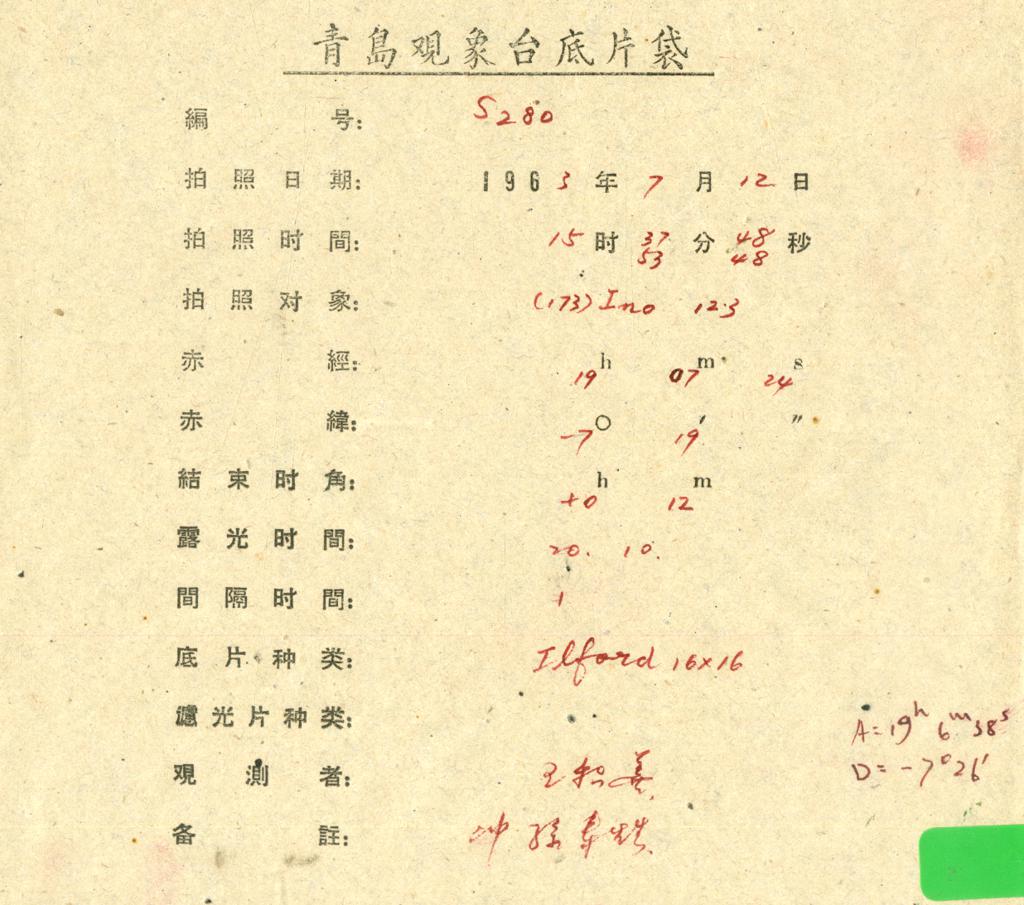 青島观象台底片袋
編号: S280
拍照日期: 1963年7月12日
拍照时間: 15时37分48秒
53 48
拍照对象: (173) Ino 12.3
赤經: 19h 07m 24s
赤緯: -7° 19′ ″
結束时角: +0h 12m
露光时間: 20. 10.
間隔时間: 1
底片种类: Ilford 16×16
濾光片种类:
A=19h 6m 38s
观測者:
D=-7°26′
备註: 冲